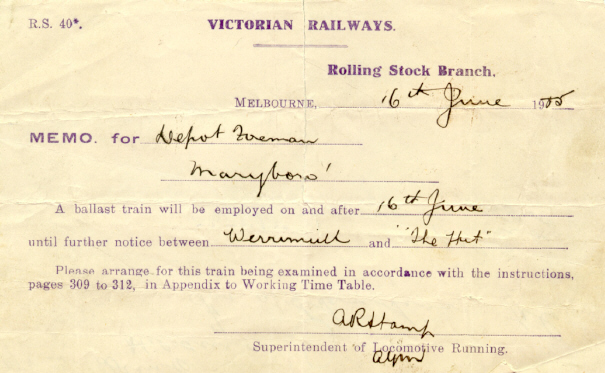 R.S. 40*.
VICTORIAN RAILWAYS.
Rolling Stock Branch.
MELBOURNE, 16th June 1925
MEMO. for Depot Foreman
Maryboro'
A ballast train will be employed on and after 16th June
until further notice between Werrimull and "The Hut"
Please arrange for this train being examined in accordance with the instructions,
pages 309 to 312, in Appendix to Working Time Table.
Superintendent of Locomotive Running.